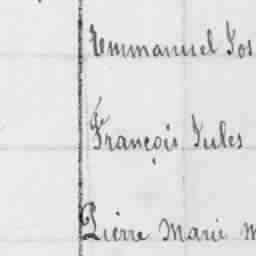 Emmanuel Jos
François Jules
Pierre Marie M